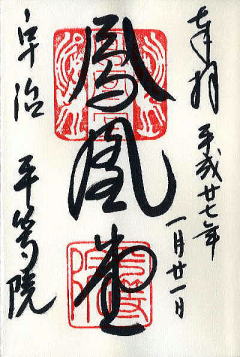 奉拝 平成廿七年
一月廿一日
鳳凰堂
宇治 平等院